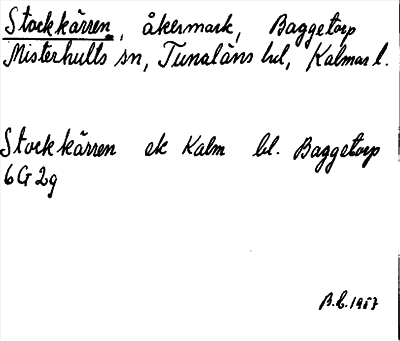 Stockkärren, åkermark, Baggetorp
Misterhults sn, Tunaläns hd, Kalmar l.
Stockkärren ek Kalm bl. Baggetorp
6G2g
B.L. 1957